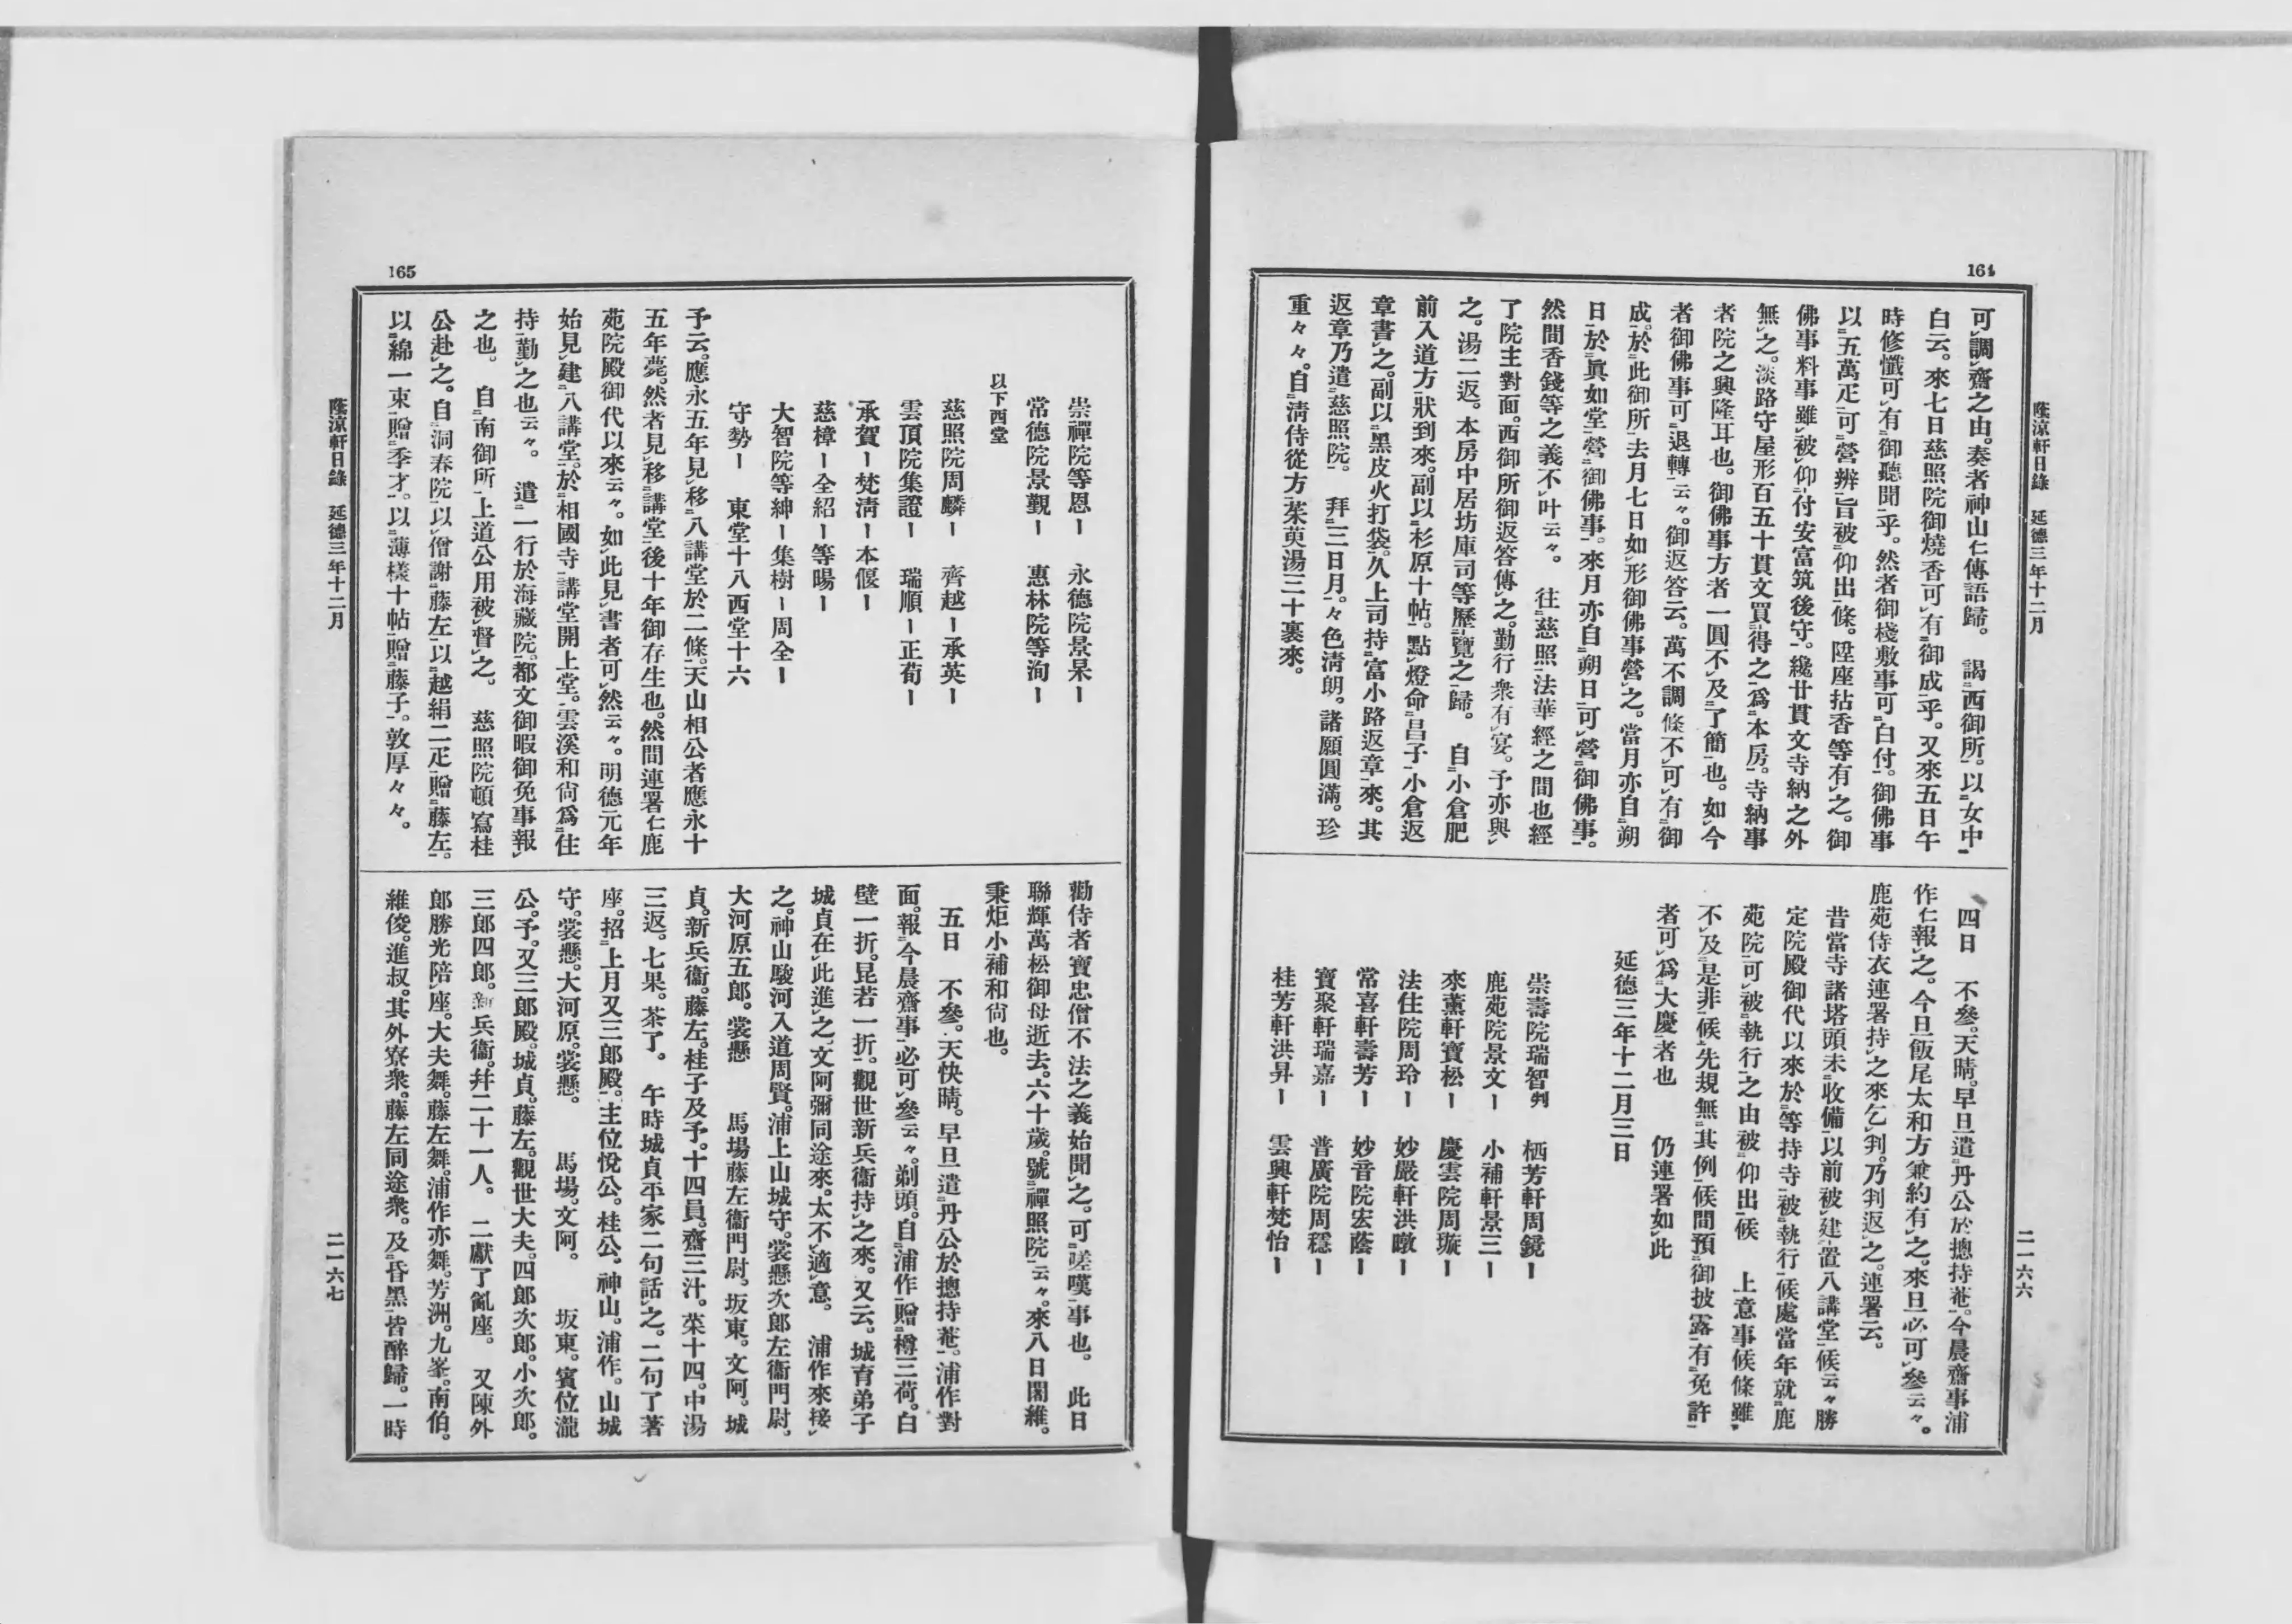 164
蔭涼軒日錄　延德三年十二月
二一六六
可ㇾ調ㇾ齋之由。奏者神山仁傳語歸。　謁㆓西御所㆒。以㆓女中㆒
白云。來七日慈照院御燒香可ㇾ有㆓御成㆒乎。又來五日午
時修懺可ㇾ有㆓御聽聞㆒乎。然者御棧敷事可㆓白付㆒。御佛事
以㆓五萬疋㆒可㆓營辨㆒旨被㆓仰出㆒條。陞座拈香等有ㇾ之。御
佛事料事雖ㇾ被㆓仰㆓付安富筑後守㆒。纔廿貫文寺納之外
無ㇾ之。淡路守屋形百五十貫文買㆓得之㆒爲㆓本房㆒。寺納事
者院之興隆耳也。御佛事方者一圓不ㇾ及㆓了簡㆒也。如ㇾ今
者御佛事可㆓退轉㆒云々。御返答云。萬不調條不ㇾ可ㇾ有㆓御
成㆒。於㆓此御所㆒去月七日如ㇾ形御佛事營ㇾ之。當月亦自㆓朔
日㆒於㆓眞如堂㆒營㆓御佛事㆒。來月亦自㆓朔日㆒可ㇾ營㆓御佛事㆒。
然間香錢等之義不ㇾ叶云々。　往㆓慈照㆒法華經之間也經
了院主對面。西御所御返答傳ㇾ之。勤行衆有ㇾ宴。予亦與ㇾ
之。湯二返。本房中居坊庫司等歷㆓覽之㆒歸。　自㆓小倉肥
前入道方㆒狀到來。副以㆓杉原十帖㆒。點ㇾ燈命㆓昌子㆒小倉返
章書ㇾ之。副以㆓黑皮火打袋㆒。久上司持㆓富小路返章㆒來。其
返章乃遣㆓慈照院㆒。　拜㆓三日月㆒。々色清朗。諸願圓滿。珍
重々々。自㆓清侍從方㆒茱萸湯三十裹來。
四日　不參。天晴。早旦遣㆓丹公於摠持菴㆒。今晨齋事浦
作仁報ㇾ之。今日飯尾太和方兼約有ㇾ之。來日必可ㇾ參云々。
鹿苑侍衣連署持ㇾ之來乞ㇾ判。乃判返ㇾ之。連署云。
昔當寺諸塔頭未㆓收備㆒以前被ㇾ建㆓置八講堂㆒候云々勝
定院殿御代以來於㆓等持寺㆒被㆓執行㆒候處當年就㆓鹿
苑院㆒可ㇾ被㆓執行㆒之由被㆓仰出㆒候　上意事候條雖ㇾ
不ㇾ及㆓是非㆒候先規無㆓其例㆒候間預㆓御披露㆒有㆓免許㆒
者可ㇾ爲㆓大慶㆒者也　　仍連署如ㇾ此
延德三年十二月三日
崇壽院瑞智判　栖芳軒周鏡ー
鹿苑院景文ー　小補軒景三ー
來薫軒寶松ー　慶雲院周璇ー
法住院周玲ー　妙嚴軒洪暾ー
常喜軒壽芳ー　妙音院宏蔭ー
寶聚軒瑞嘉ー　普廣院周穩ー
桂芳軒洪昇ー　雲興軒梵怡ー
165
蔭涼軒日錄　延德三年十二月
二一六七
崇禪院等恩ー　永德院景杲ー
常德院景觀ー　惠林院等洵ー
以下西堂
慈照院周麟ー　齊越ー承英ー
雲頂院集證ー　瑞順ー正荀ー
承賀ー梵淸ー本偃ー
慈樟ー全紹ー等暘ー
大智院等紳ー集樹ー周全ー
守勢ー　東堂十八西堂十六
予云。應永五年見ㇾ移㆓八講堂於二條㆒。天山相公者應永十
五年薨。然者見ㇾ移㆓講堂㆒後十年御存生也。然間連署仁鹿
苑院殿御代以來云々。如ㇾ此見ㇾ書者可ㇾ然云々。明德元年
始見ㇾ建㆓八講堂㆒。於㆓相國寺㆒講堂開上堂。雲溪和尙爲㆓住
持㆒勤ㇾ之也云々。　遣㆓一行於海藏院㆒。都文御暇御免事報ㇾ
之也。　自㆓南御所㆒上道公用被ㇾ督ㇾ之。　慈照院頓寫桂
公赴ㇾ之。自㆓洞春院㆒以ㇾ僧謝㆓藤左㆒以㆓越絹二疋㆒贈㆓藤左㆒。
以㆓綿一束㆒贈㆓季才㆒。以㆓薄樣十帖㆒贈㆓藤子㆒。敦厚々々。
勸侍者寶忠僧不㆓法之義始聞ㇾ之。可㆓嗟嘆㆒事也。　此日
聯輝萬松御母逝去。六十歲。號㆓禪照院㆒云々。來八日闍維。
秉炬小補和尙也。
五日　不參。天快晴。早旦遣㆓丹公於摠持菴㆒。浦作對
面。報㆓今晨齋事㆒必可ㇾ參云々。剃頭。自㆓浦作㆒贈㆓樽三荷㆒。白
壁一折。昆若一折。觀世新兵衞持ㇾ之來。又云。城育弟子
城貞在ㇾ此進ㇾ之。文阿彌同途來。太不ㇾ適ㇾ意。　浦作來接ㇾ
之。神山駿河入道周賢。浦上山城守。裳懸次郎左衞門尉。
大河原五郎。裳懸　　馬場藤左衞門尉。坂東。文阿。城
貞。新兵衞。藤左。桂子及予。十四員。齋三汁。菜十四。中湯
三返。七果。茶了。　午時城貞平家二句話ㇾ之。二句了著
座。招㆓上月又三郎殿㆒。主位悅公。桂公。神山。浦作。山城
守。裳懸。大河原。裳懸。　　馬場。文阿。　　坂東。賓位瀧
公。予。又三郎殿。城貞。藤左。觀世大夫。四郎次郎。小次郎。
三郎四郎。新兵衞。幷二十一人。　二獻了亂座。　又陳外
郎勝光陪ㇾ座。大夫舞。藤左舞。浦作亦舞。芳洲。九峯。南伯。
維俊。進叔。其外寮衆。藤左同途衆。及㆓昏黑㆒皆醉歸。一時